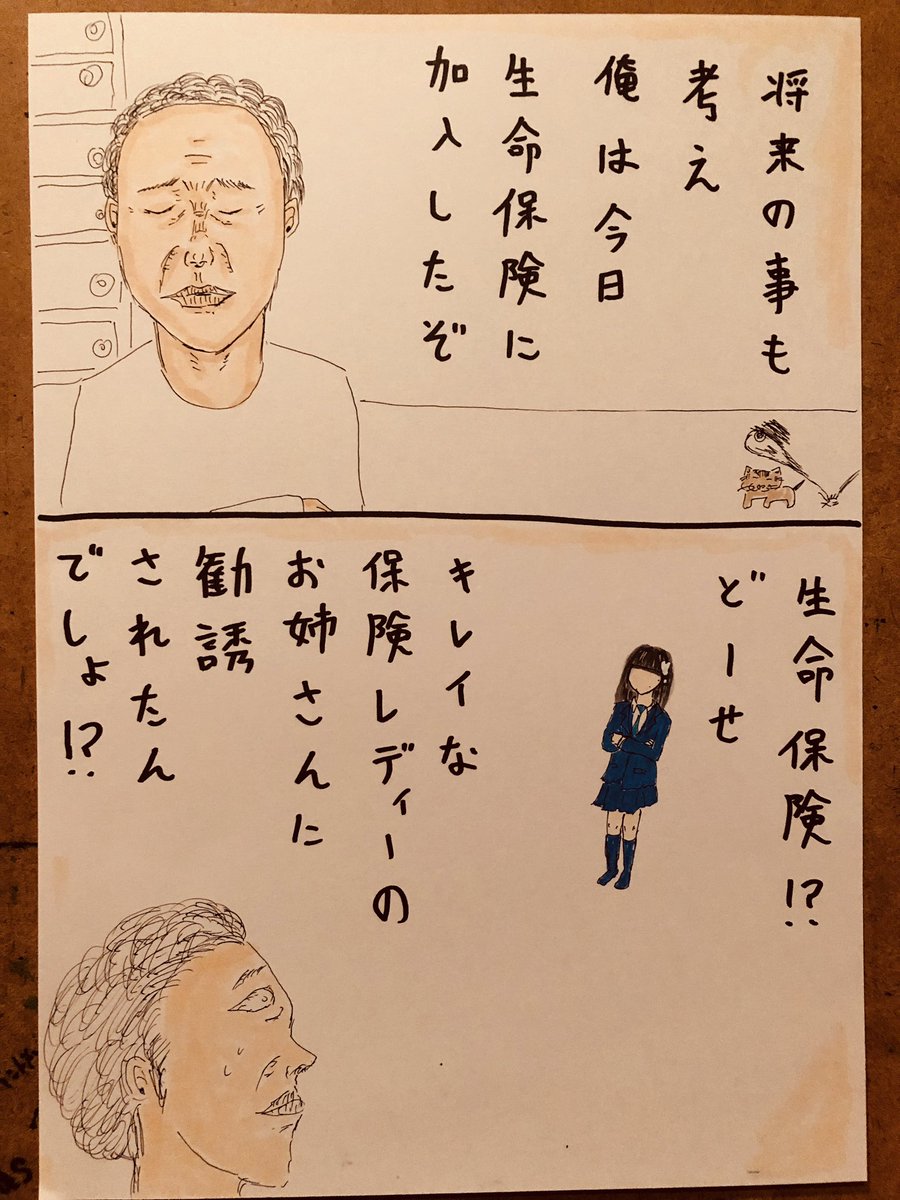 将来の事も
考え
俺は今日
生命保険に
加入したぞ
生命保険!?
どーせ
キレイな
保険レディーの
お姉さんに
勧誘
されたん
でしょ!?